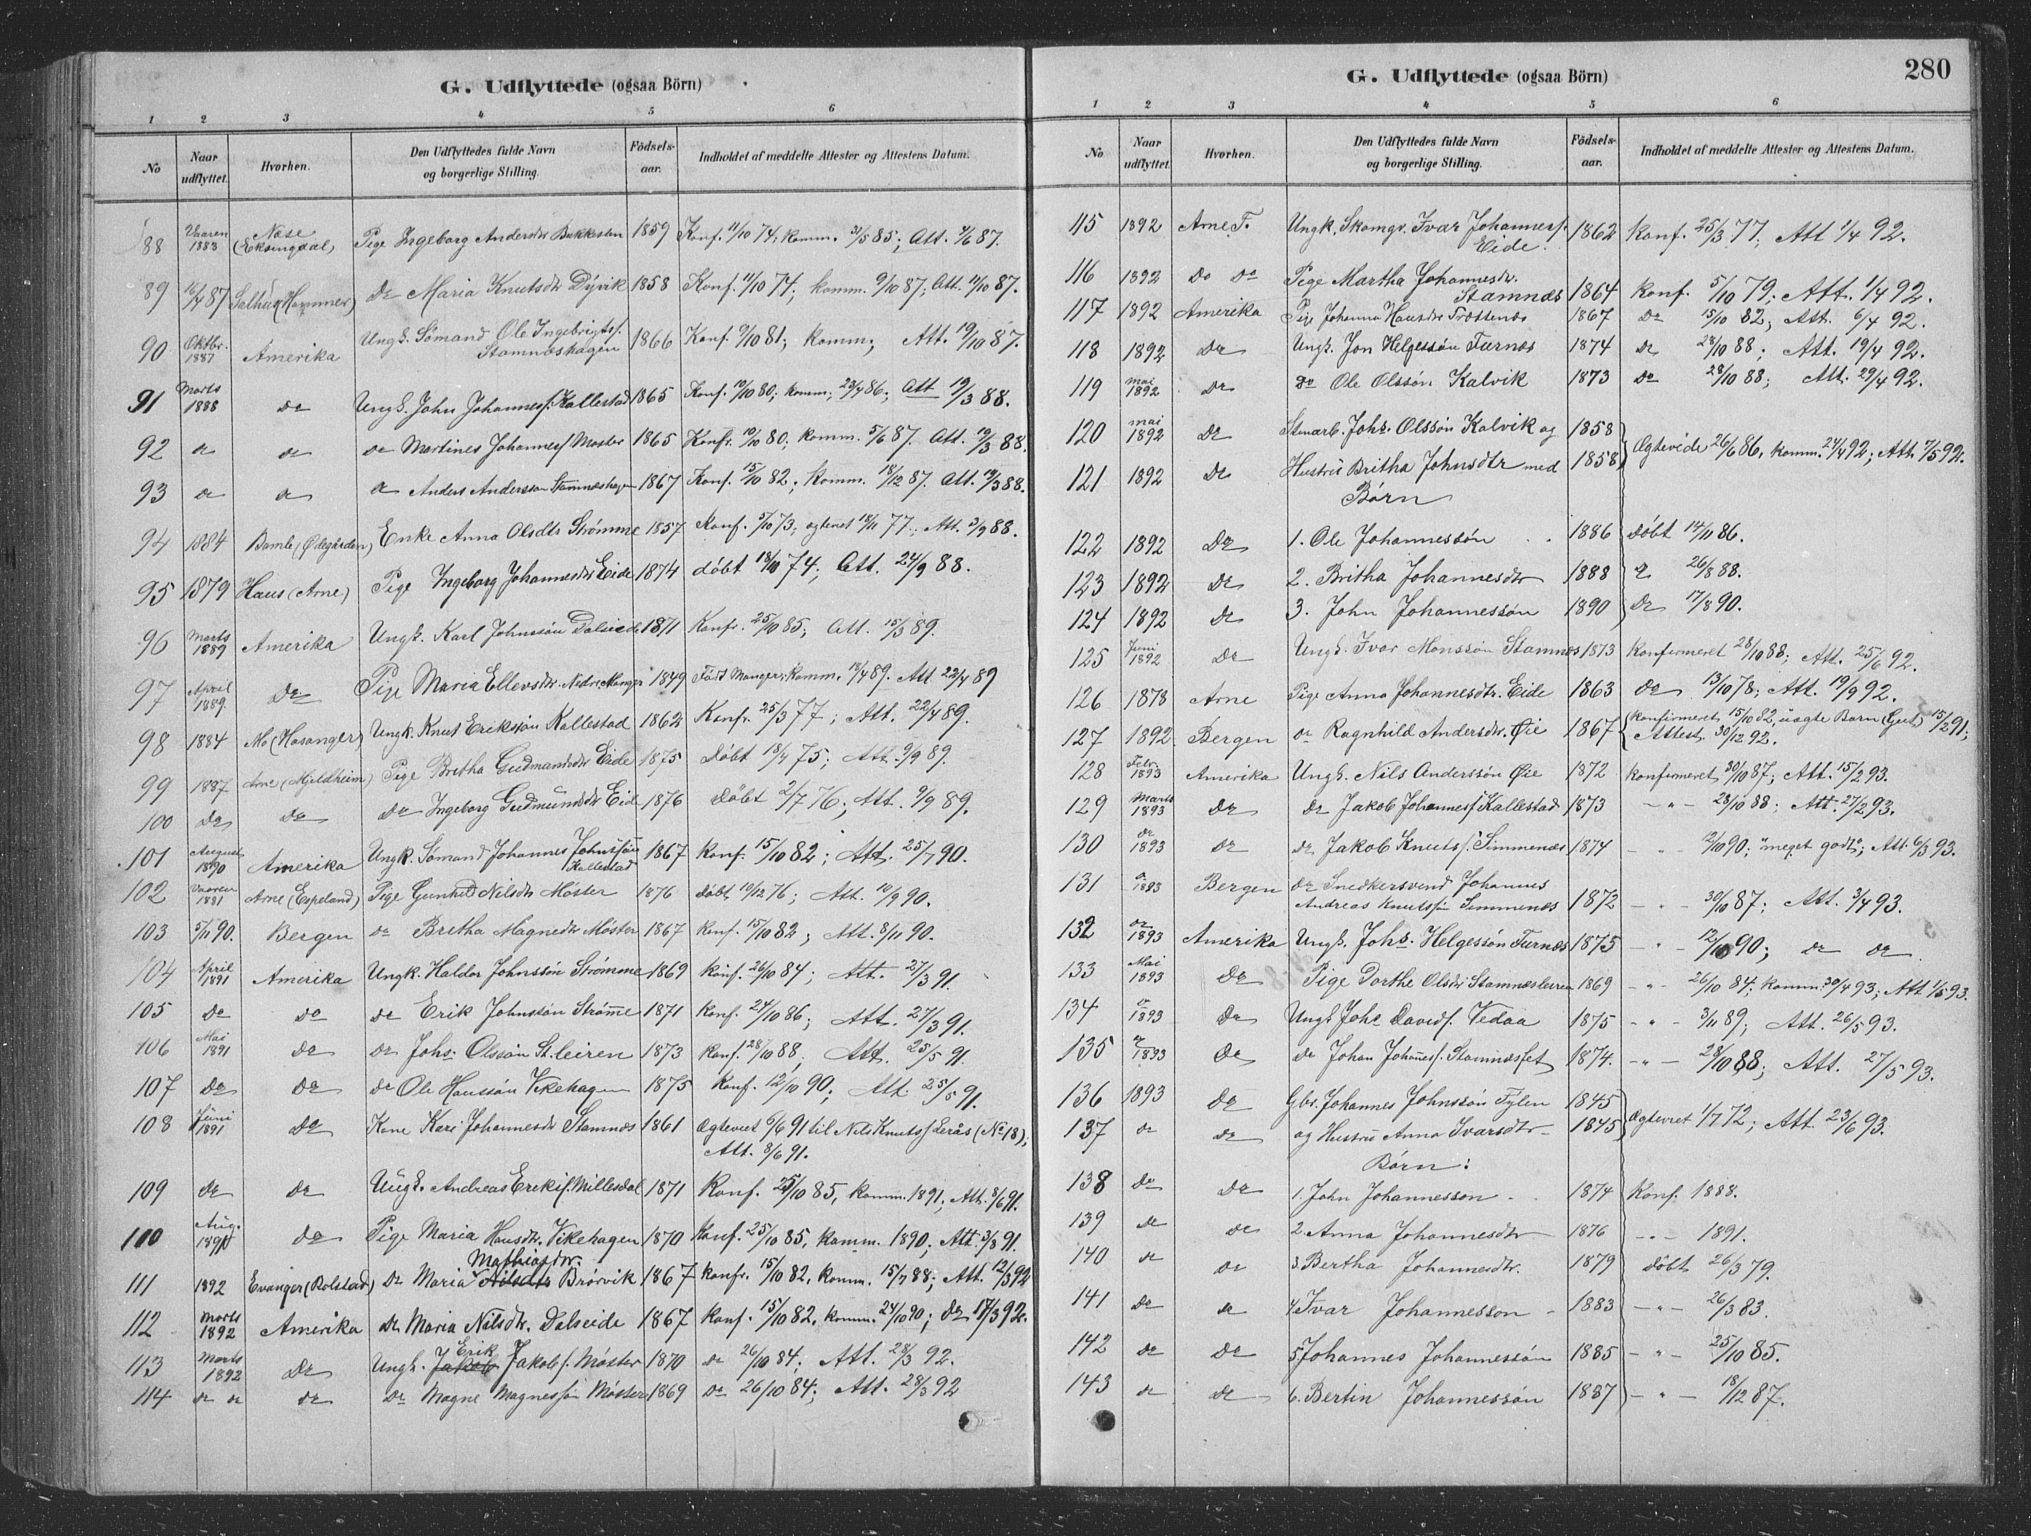 G. Udflyttede (ogsaa Börn)
1 2 3 4 5 6
No Naar udflyttet. Hvorhen. Den Udflyttedes fulde Navn og borgerlige Stilling. Födsels-aar. Indholdet af meddelte Attester og Attestens Datum.
88 Vaaren 1883 (Eksingdal) Pige Ingeborg Andersdtr 1859 Konf. 11/10 74, komm. 31/5 85; Att. 87.
89 87 Salhus (Hammer) do Maria Knutsdtr Dyvik 1858 Konf. 11/10 74; komm. 9/10 87; Att. 87.
90 Oktbr. 1887 Amerika Ungk. Sömand Ole Ingebrigts. Stamneshagen 1866 Konf. 9/10 81; komm; Att. 19/10 87.
91 Marts 1888 do Ungk. John Johannes. Kallestad 1865 Konf. 10/10 80; komm; 86; Att 19/3 88.
92 do do do Martines Johannes. Moster 1865 Konfr. 10/10 80; komm. 5/6 87. Att. 19/3 88.
93 do do do Anders Andersson Stamneshagen 1867 Konf. 15/10 82; komm. 18/12 87. Att. 19/3 88.
94 1884 Bamle (Ødegården) Enke Anna Olsdtr Strømme 1857 Konf. 5/10 73; 18/11 77; Att. 3/9 88.
95 1879 Haus (Arne) Pige Ingeborg Johannesdtr Eide 1874 døbt 18/10 74; Att. 24/9 88.
96 Marts 1889 Amerika Ungk. Karl Johnssön Dalseide 1871 Konfr. 25/10 85; Att. 15/3 89.
97 April 1889 do Pige Maria Ellevsdtr Nedre Manger 1849 Födt Manger; komm. 89. Att 22/4 89
98 1884 Mo (Hosanger) Ungk. Knut Erikssön Kallestad 1862 Konfr. 25/3 77; Att. 22/4 89.
99 1887 Arne (Mjeldheim) Pige Britha Gudmundsdtr Eide 1875 Döbt 18/7 75; Att. 9/9 89.
100 do do do Ingeborg Gudmundsdtr Eid 1876 Döbt 2/7 76; Att. 9/9 89.
101 August 1890 Amerika Ungk. Sömand Johannes Johnssön Kallestad 1867 Konf. 15/10 82; Att. 25/7 90.
102 Vaaren 1881 Arne (Espeland) Pige Gunhild Nilsdtr Möster 1876 döbt 10/12 76; Att. 10/9 90.
103 5/11 90. Bergen do Britha Magnedtr Möster 1867 Konf. 15/10 82; Att. 8/11 90.
104 April 1891 Amerika Ungk. Haldor Johnssön Strømme 1869 Konf. 26/10 84; Att. 27/3 91.
105 do do do Erik Johnssön Strømme 1871 Konf. 24/10 86; Att. 27/3 91.
106 Mai 1891 do do Johs. Olssön St.leiren 1873 Konf. 28/10 88; Att. 25/5 91.
107 do do do Ole Hanssön Vikehagen 1875 Konf. 12/10 90; Att. 25/5 91.
108 Juni 1891 do Kone Kari Johannesdtr Stamnes 1861 Ægteviet 6/6 91 til Nils Knuts. (No 18);
Att. 8/6 91.
109 do do Ungk. Andreas Eriks. Millesdal 1871 Konf. 25/10 85, komm. 1891; Att. 8/6 91.
110 Aug. 1891 do Pige Maria Hansdtr. Vikehagen 1870 Konf. 25/10 85, komm. 1890; Att. 3/8 91.
Mathiasdtr.
111 1892 Evanger (Bolstad) do Maria Nilsdtr Brörvik 1867 Konfr. 15/10 82, komm. 15/7 88; Att. 12/3 92
112 Marts 1892 Amerika do Maria Nilsdtr. Dalseide 1867 Konf. 15/10 82, komm. 24/10 90; do 17/3 92.
Erik
113 Marts 1892 do Ungk. Jakob Jakobs. Møster 1870 do 26/10 84; Att. 28/3 92.
114 do do do do Magne Magnessön Møster 1869 do 26/10 84; Att. 28/3 92
G. Udflyttede (ogsaa Börn) 280
1 2 3 4 5 6
No Naar udflyttet. Hvorhen. Den Udflyttedes fulde Navn og borgerlige Stilling. Födsels-aar. Indholdet af meddelte Attester og Attestens Datum.
115 1892 Arne F. Ungk. Skomgr. Ivar Johannes. Eide. 1862 Konf. 25/3 77; Att 1/4 92.
116 1892 do do Pige Martha Johannesdtr. Stamnæs 1864 Konf. 5/10 79; Att. 1/4 92.
117 1892 Amerika Pige Johanna Hansdtr 1867 do 15/10 82; Att. 6/4 92.
118 1892 do Ungk. Jon Helgessön Furnæs 1874 do 28/10 88; Att. 19/4 92.
119 mai 1892 do do Ole Olssön Kalvik 1873 do 28/10 88; Att. 29/4 92.
120 mai 1892 do Stenarb. Johs. Olssön Kalvik og 1858 Ægteviede 26/6 86, komm. 24/4 92; Att. 7/5 92.
121 1892 do Hustru Britha Johnsdtr med 1858
Børn
122 1892 do 1. Ole Johannessön 1886 Döbt 14/11 86.
123 1892 do 2. Britha Johannesdtr 1888 do 26/8 88.
124 1892 do 3. John Johannessön 1890 do 17/8 90.
125 Juni 1892 do Ungk. Ivar Monssön Stamnes 1873 Konfirmeret 28/10 88; Att. 25/6 92.
126 1878 Arne Pige Anna Johannesdtr. Eide 1863 do 13/10 78; Att. 19/9 92.
127 1892 Bergen do Ragnhild Andersdtr. Øie 1867 Konfirmeret 15/10 82, uægte Barn (Gut) 15/2 91;
Attest. 30/12 92.
128 Febr. 1893 Amerika Ungk. Nils Anderssön Øie 1872 Konfirmeret 30/10 87; Att. 15/2 93.
129 Marts 1893 do do Jakob Johannes. Kallestad 1873 -"- 28/10 88; Att. 27/2 93.
130 do 1893 do do Jakob Knuts. Simmenæs 1874 -"- 90; "meget godt"; Att. 6/3 93.
131 do 1893 Bergen do Snedkersvend Johannes
Andreas Knutssön Simmenæs 1872 -"- 30/10 87; Att. 3/4 93.
132 do 1893 Amerika Ungk. Johs. Helgessön Furnæs 1875 -"- 12/10 90; do do
133 Mai 1893 do Pige Dorthe Olsdtr Stamnæsleiren 1869 -"- 26/10 84; komm. 30/4 93; Att 1/5 93.
134 do 1893 do Ungk Johs Davids. Vedaa 1875 -"- 3/11 89; Att. 26/5 93.
135 do 1893 do do Johan Johannes. Stamnæsfet 1874. -"- 28/10 88; Att. 27/5 93.
136 1893 do Gbr. Johannes Johnssön Fylen 1845 Ægteviet 1/7 72; Att. 23/6 93.
137 do do og Hustru Anna Ivarsdtr 1845
Børn:
138 do do 1. John Johannesson 1874 Konf. 1888.
139 do do 2. Anna Johannesdtr 1876 -"- 1891.
140 do do 3 Bertha Johannesdtr. 1879 Döbt 26/3 79.
141 do do 4. Ivar Johannesson 1883 -"- 26/3 83.
142 do do 5 Johannes Johannessön 1885 -"- 25/10 85.
143 do do 6. Bertin Johannessön 1887 -"- 18/12 87.